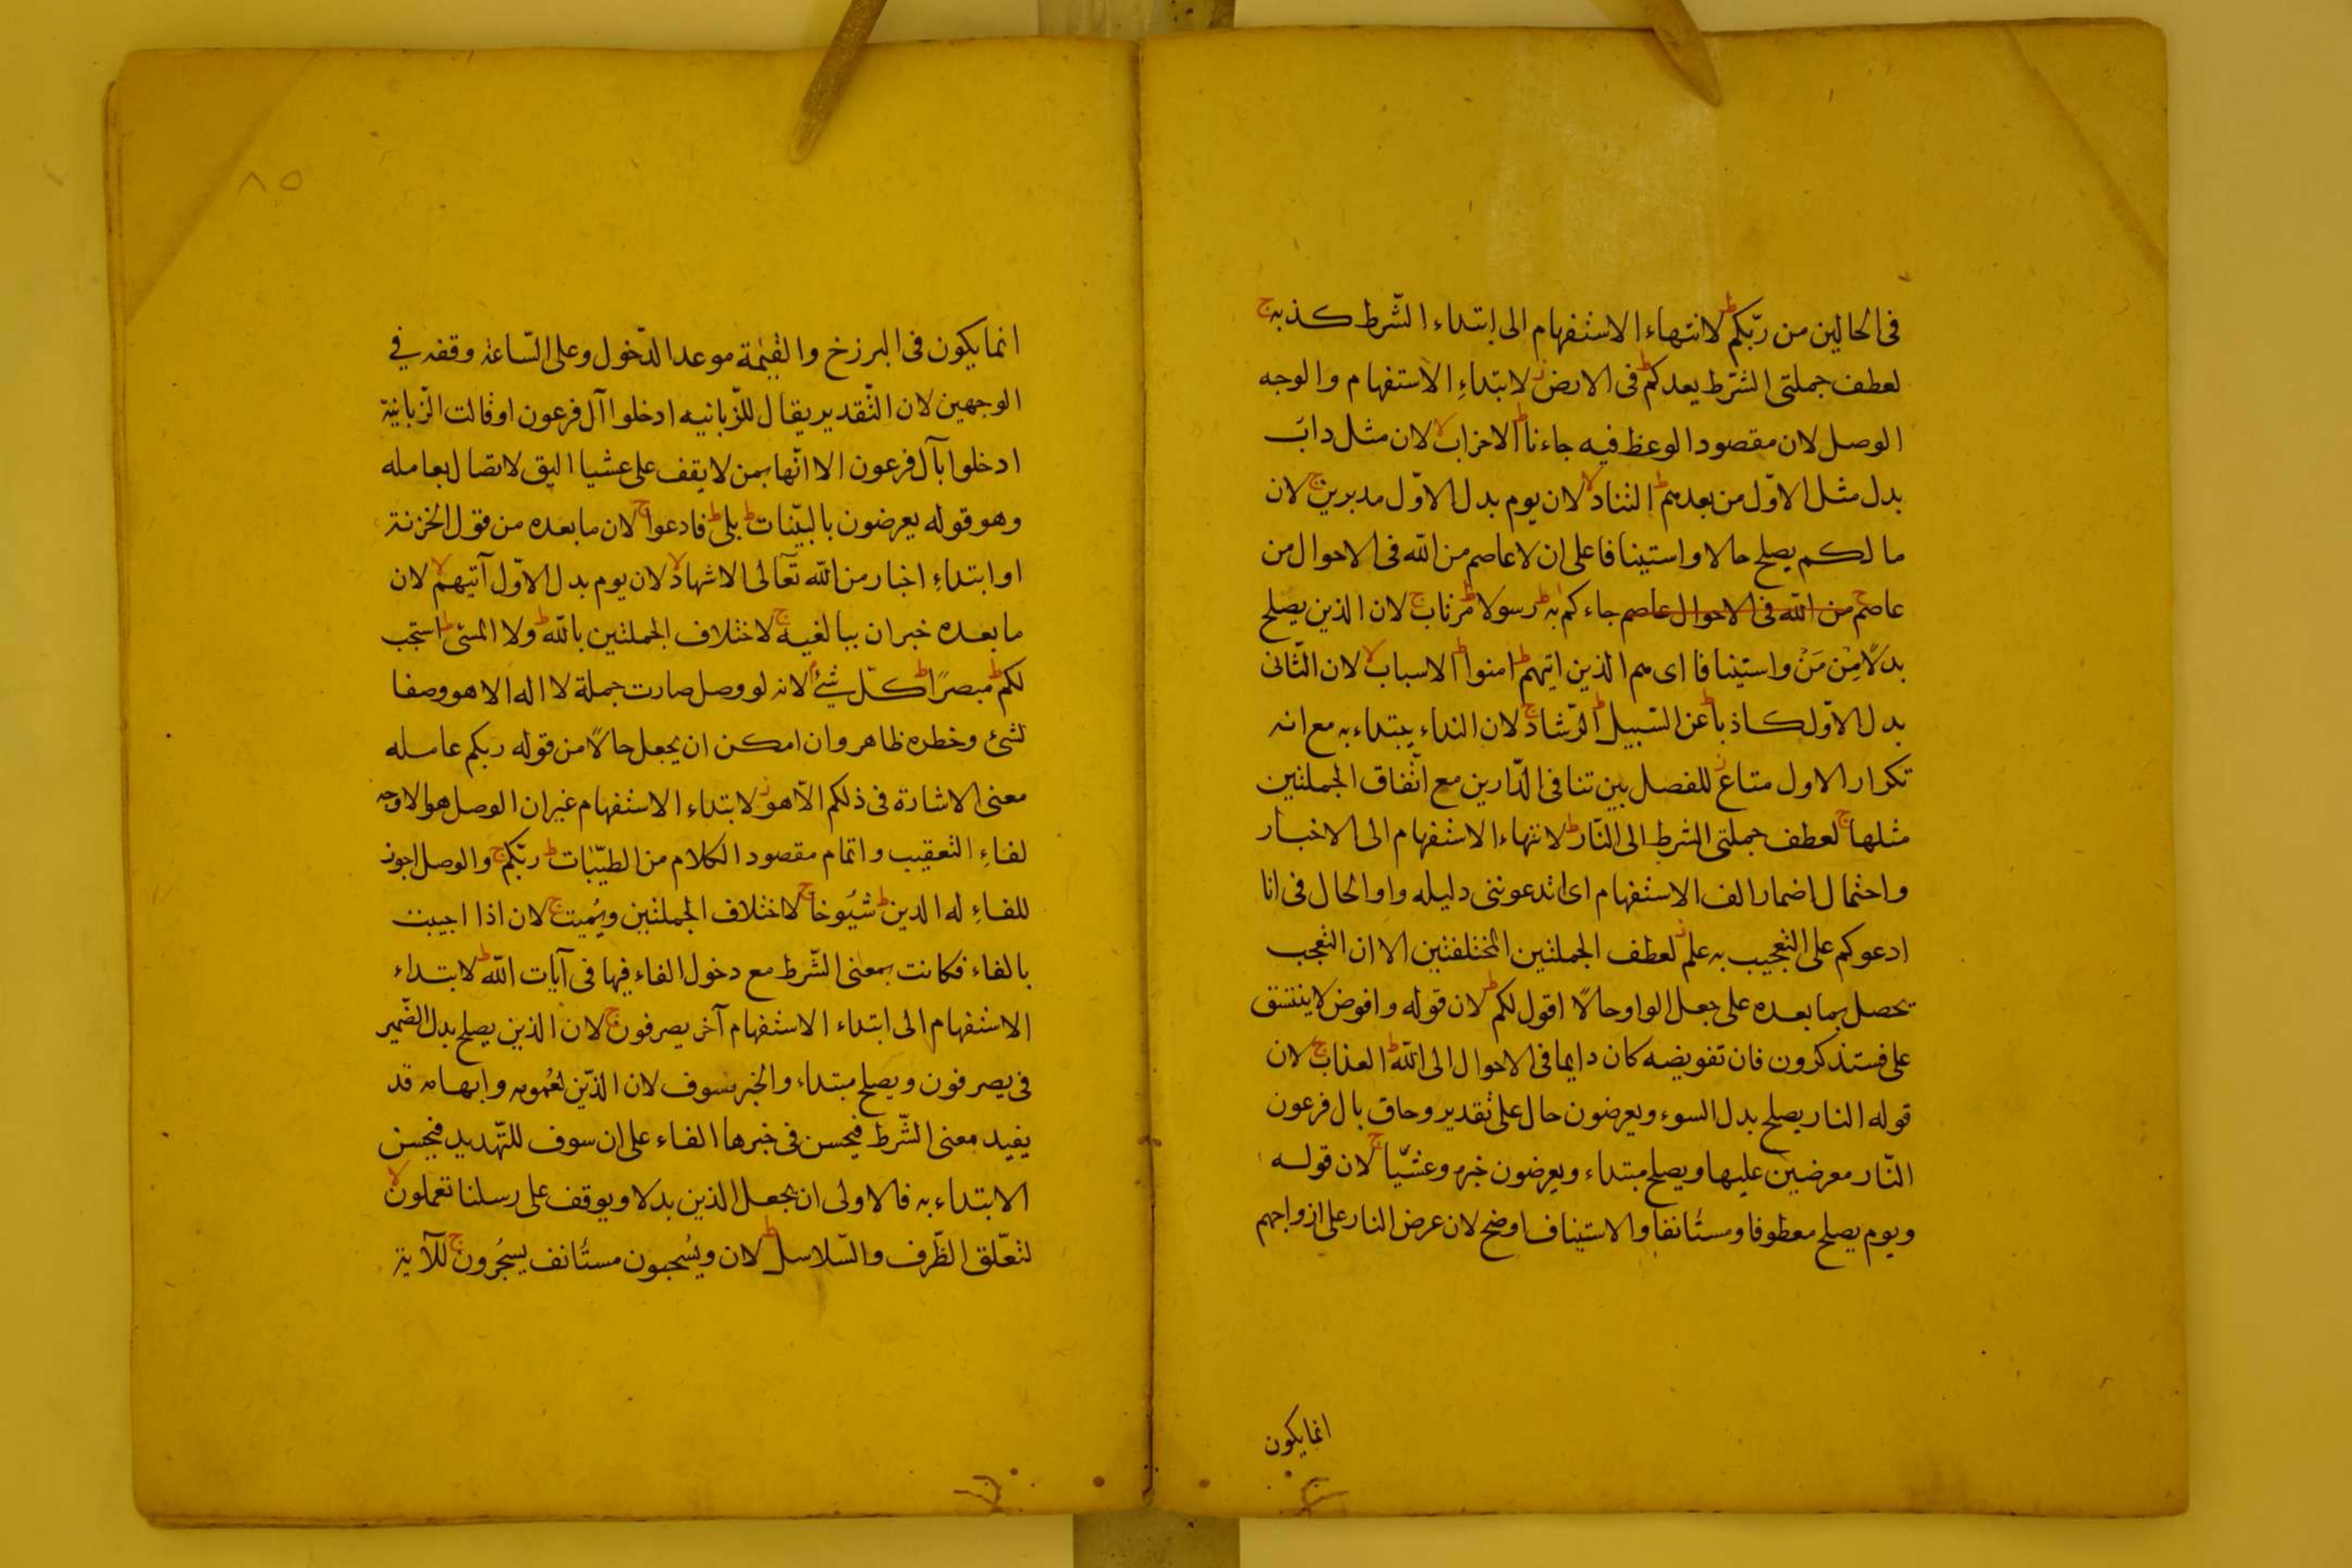 فى الحالين من ربّكم ط لانتهاء الاستفهام الى ابتداء الشّرط كذبه ج
لعطف جملتى الشّرط يعدكم ط فى الارض ز لابتداءِ الاستفهام والوجه
الوصل لان مقصود الوعظ فيه جاءنا ط الاحزاب لا لان مثل دائب
بدل مثل الاوّل من بعدهم ط التناد لا لان يوم بدل الاوّل مدبرين ج لان
ما لكم يصلح حالا واستينافا على ان لا عاصم من الله فى الاحوال من
عاصم ج من الله فى الاحوال عاصم جاءكم به ط رسولا ط مرتاب ج لان الذين يصلح
بدلًا مِنْ مَنْ واستينافا اى هم الذين اتيهم ط امنوا ط الاسباب لا لان الثّانى
بدل الاوّل كاذبا ط عن السّبيل ط الرّشاد ج لان النداء يبتداء به مع انه
تكرار الاول متاع ز للفصل بين تنافى الدّارين مع اتّفاق الجملتين
مثلها ج لعطف جملتى الشرط الى النّار ط لانتهاء الاستفهام الى الاخبار
واحتمال اضمار الف الاستفهام اى اتدعوننى دليله واو الحال فى انا
ادعوكم على التعجيب به علم ز لعطف الجملتين المختلفتين الا ان التعجب
يحصل بما بعده على جعل الواو حالًا اقول لكم ط لان قوله وافوض لا يتسق
على فستذكرون فان تفويضه كان دايما فى الاحوال الى الله ط العذاب ج لان
قوله النار يصلح بدل السوء ويعرضون حال على تقدير وحاق بال فرعون
النّار معرضين عليها ويصلح مبتداء ويعرضون خبره وعشيّا ج لان قوله
ويوم يصلح معطوفا ومستانفا والاستيناف اوضح لان عرض النار على ازواجهم
انما يكون
٨٥
انما يكون فى البرزخ والقيٰمة موعد الدّخول وعلى السّاعة وقفه في
الوجهين لان التّقدير يقال للزّبانيه ادخلوا آل فرعون او قالت الزّبانيّة
ادخلوا يآل فرعون الا انّها بمن لا يقف على عشيا اليق لاتصال بعامله
وهو قوله يعرضون بالبيّنات ط بلى ط فادعوا ج لان ما بعده من قول الخزنة
او ابتداءِ اخبار من الله تعالى الاشهاد لا لان يوم بدل الاوّل آتيهم لا لان
ما بعده خبر ان ببالغيه ج لاختلاف الجملتين بالله ط ولا المسئ ط استجب
لكم ط مبصرًا ط كلّ شئ لانه لو وصل صارت جملة لا اله الا هو وصفا
لشئ وخطره ظاهر وان امكن ان يجعل حالًا من قوله ربكم عامله
معنى الاشارة فى ذلكم الّا هو ز لابتداء الاستفهام غير ان الوصل هو الاوجه
لفاءِ التعقيب واتمام مقصود الكلام من الطيّبات ط ربّكم ج والوصل اجوز
للفاءِ له الدين ط شيُوخا ج لاختلاف الجملتين ويُميت ج لان اذا اجيبت
بالفاء فكانت بمعنى الشّرط مع دخول الفاء فيها فى آيات الله ط لابتداء
الاستفهام الى ابتداء الاستفهام آخر يصرفون ج لان الذين يصلح بدل الضّمير
فى يصرفون ويصلح مبتداء والخبر فسوف لان الذّين لعُمومه وابهامه قد
يفيد معنى الشّرط فيحسن فى خبرها الفاء على ان سوف للتّهديد فيحسن
الابتداء به فالاولى ان يجعل الذين بدلا ويوقف على رسلنا تعملون لا
لتعّلق الظّرف والسّلاسل ط لان ويُسحبون مستَانف يسجُرون ج للآية